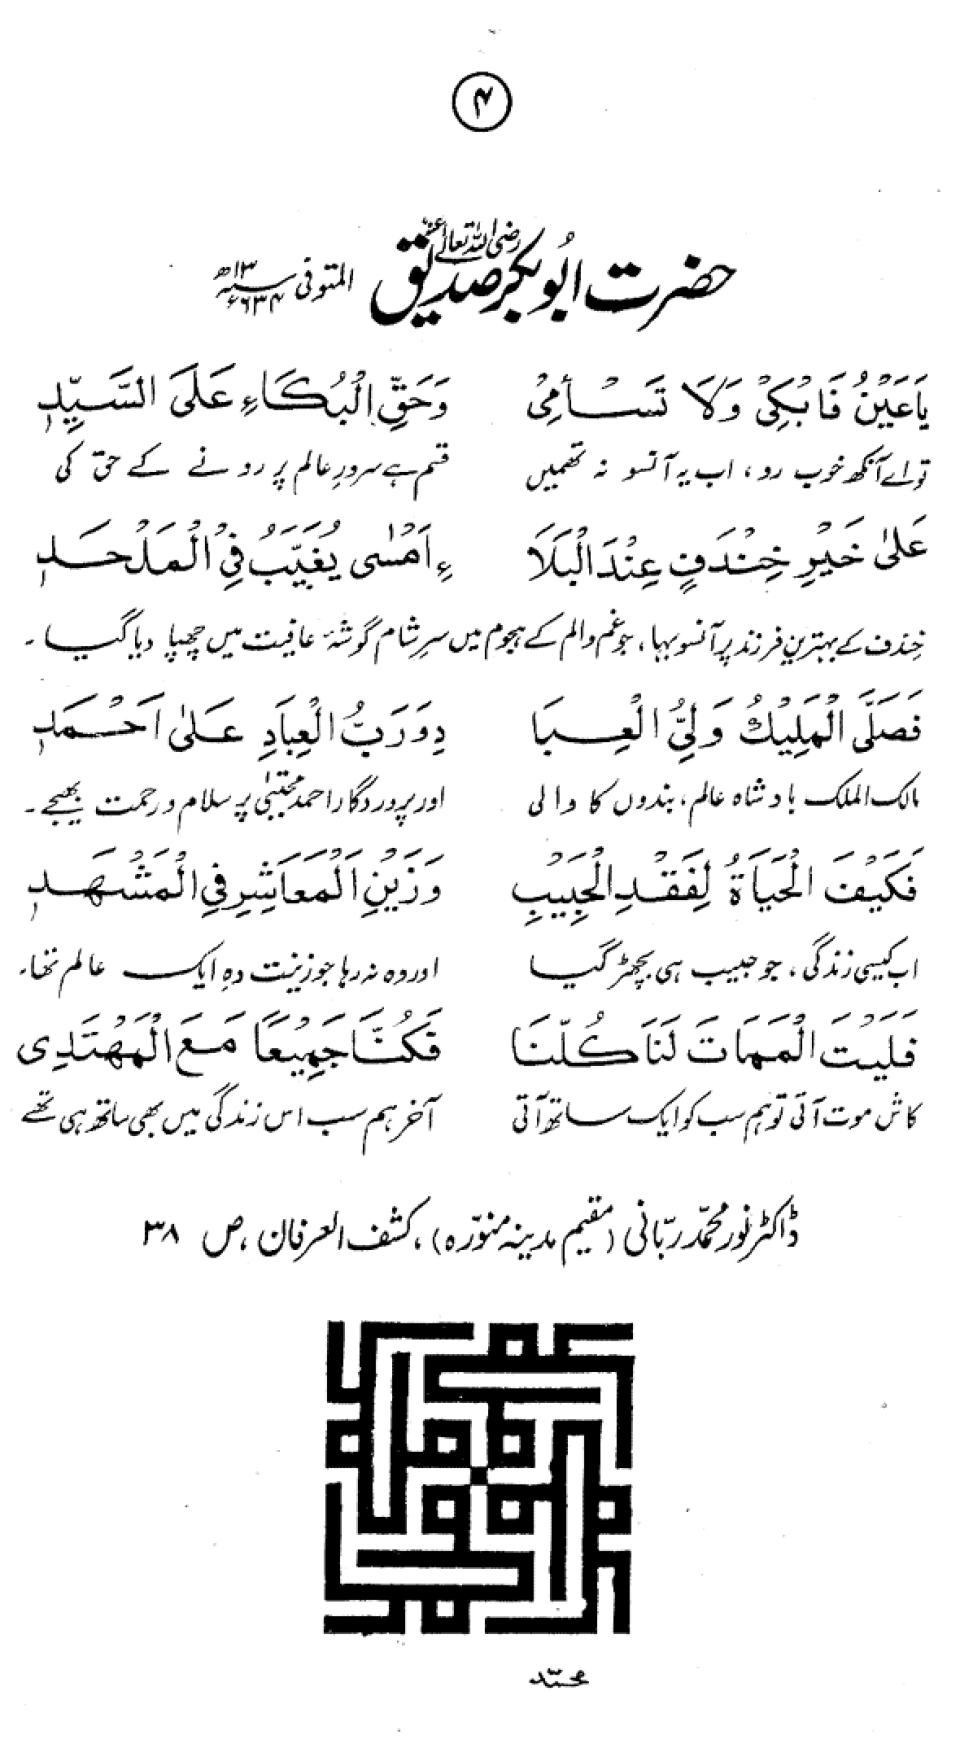 ۴
حضرت ابُوبکر صدیق رضی اللہ تعالیٰ عنہ المتوفی سنہ ۱۳ھ ۶۳۴ء
يَاعَيْنُ فَابْكِىْ وَلَا تَسْأَمِىْ وَحَقِّ الْبُكَاءِ عَلَى السَّيِّدِ
تو اے آنکھ خوب رو، اب یہ آنسو نہ تھمیں قسم ہے سرورِ عالم پر رونے کے حق کی
عَلىٰ خَيْرِ خِنْدَفٍ عِنْدَ الْبَلَا ءِ اَمْسٰى يُغَيَّبُ فِى الْمَلْحَدِ
خِندف کے بہترین فرزند پر آنسو بہا، جو غم والم کے ہجوم میں سرِ شام گوشۂ عافیت میں چھپا دیا گیا۔
فَصَلَّى الْمَلِيْكُ وَلِىُّ الْعِبَا دِ وَرَبُّ الْعِبَادِ عَلىٰ اَحْمَدِ
مالک الملک بادشاہ عالم، بندوں کا والی اور پروردگار احمد مجتبیٰ پر سلام و رحمت بھیجے۔
فَكَيْفَ الْحَيَاةُ لِفَقْدِ الْحَبِيْبِ وَزَيْنِ الْمَعَاشِرِ فِى الْمَشْهَدِ
اب کیسی زندگی، جو حبیب ہی بچھڑ گیا اور وہ نہ رہا جو زینت دہِ ایک عالم تھا۔
فَلَيْتَ الْمَمَاتَ لَنَا كُلِّنَا فَكُنَّا جَمِيْعًا مَعَ الْمُهْتَدِى
کاش موت آتی تو ہم سب کو ایک ساتھ آتی آخر ہم سب اس زندگی میں بھی ساتھ ہی تھے
ڈاکٹر نور محمّد ربّانی (مقیم مدینہ منوّرہ)، کشف العرفان، ص ۳۸
محمّد